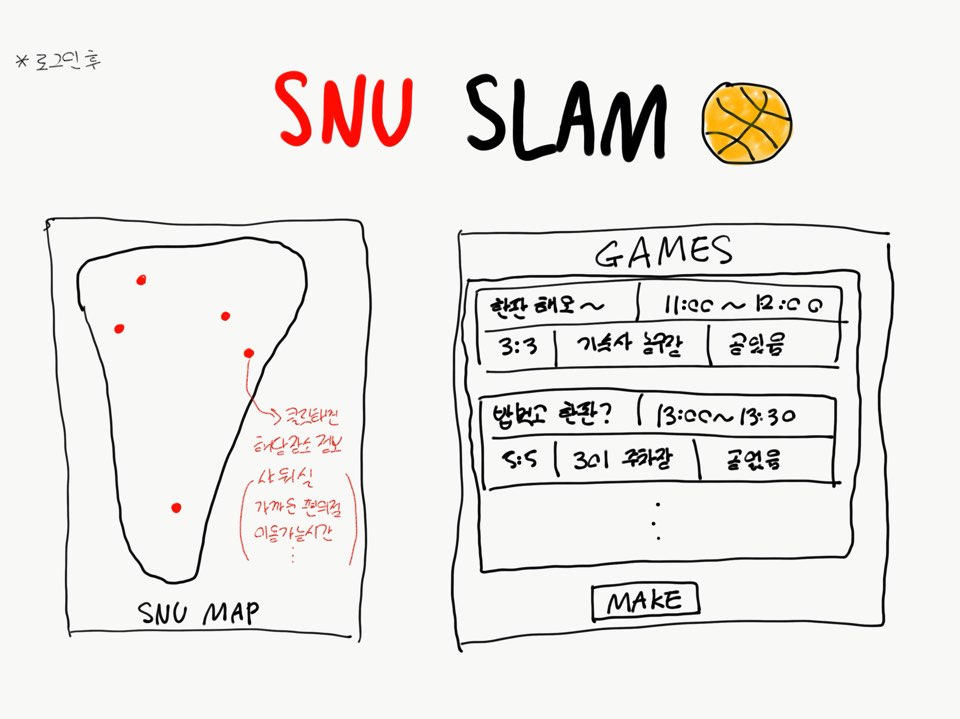 *로그인 후
SNU SLAM
클릭하면
해당장소 정보
샤워실
가까운 편의점
이용가능시간
⋮
SNU MAP
GAMES
한판 해요~ 11:00 ~ 12:00
3:3 기숙사 농구장 공있음
밥먹고 한판? 13:00~13:30
5:5 301 주차장 공없음
⋮
MAKE